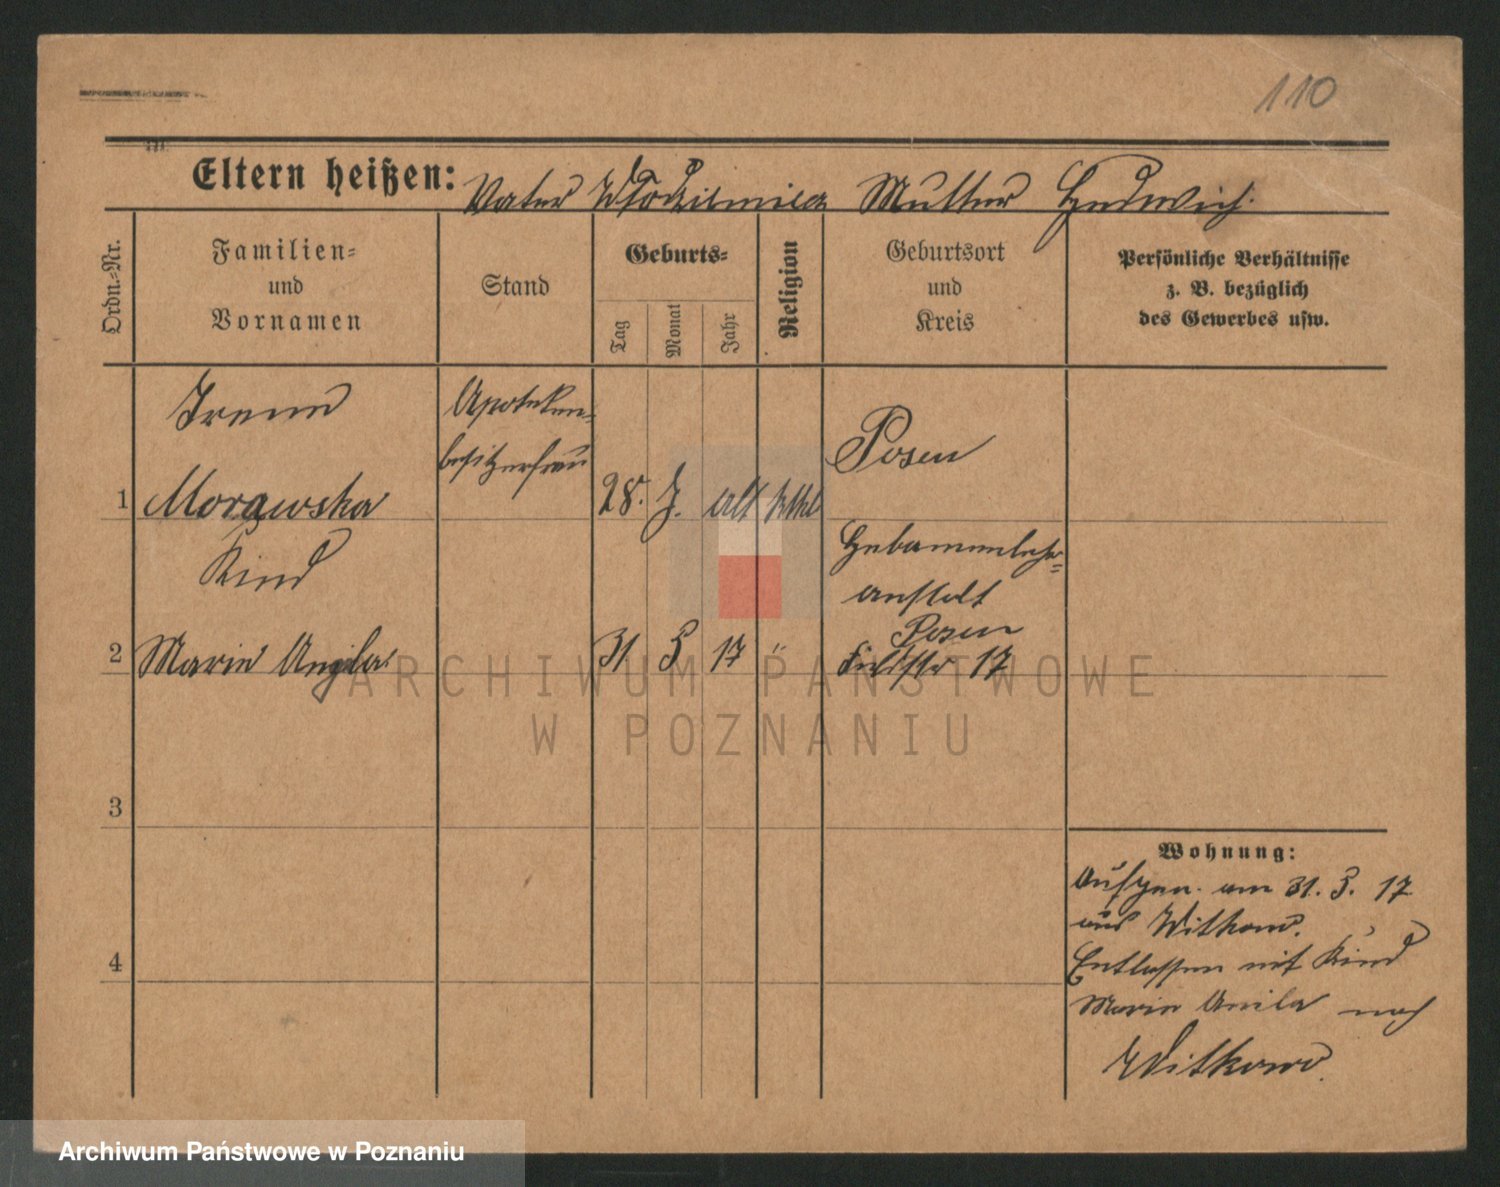 110
Eltern heißen: Vater Wlodzimier Mutter Hedwich.
Ordn.-Nr.
Familien-
und
Vornamen
Stand
Geburts-
Tag
Monat
Jahr
Religion
Geburtsort
und
Kreis
Persönliche Verhältnisse
z. B. bezüglich
des Gewerbes usw.
1
Irene
Morawska
Apoteken-
besitzerfrau
28. J. alt kthl
Posen
2
Kind
Maria Angila
31 5 17 "
Hebammenlehr-
anstalt
Posen
17
3
4
Wohnung:
Aufgen. am 31. 5. 17
aus Witkowo.
Entlassen mit Kind
Maria Anila nach
Witkowo.
ARCHIWUM PAŃSTWOWE
W POZNANIU
Archiwum Państwowe w Poznaniu